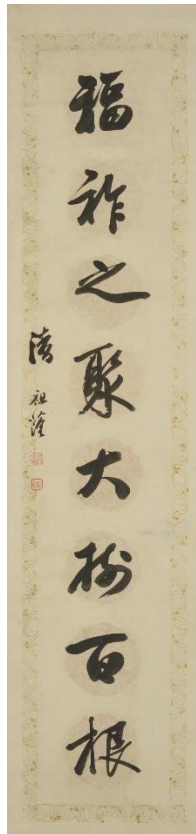 福祚之聚大樹百根
潘祖蔭